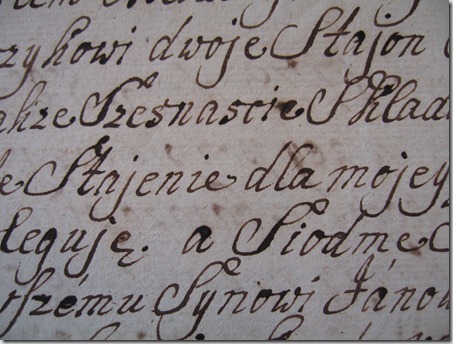 zykowi dwoje Stajon
akze Szesnascie Sklad
e Stajenie dla mojey
leguję. a Siodmę
szému Synowi Jáno